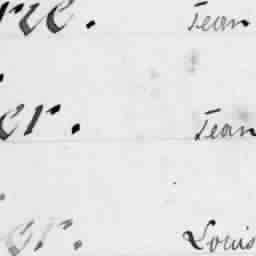 rie. Jean
er. Jean
er. Louis